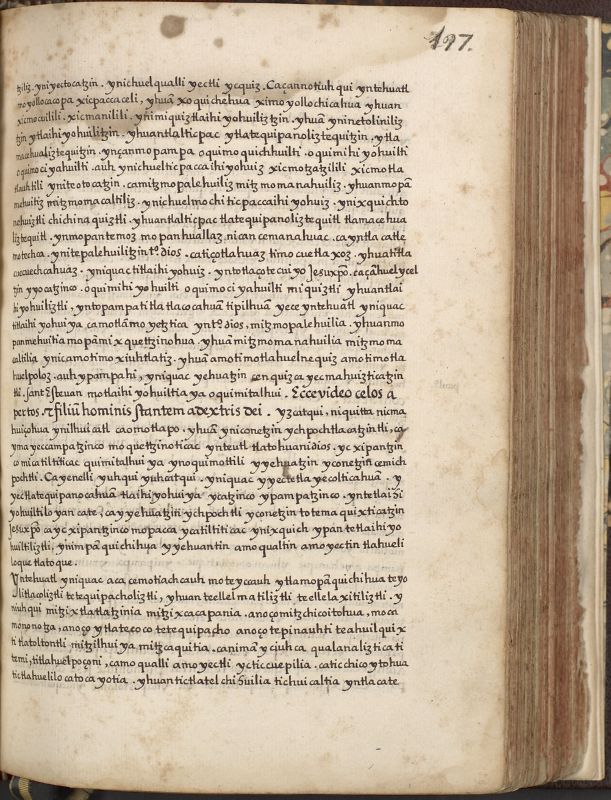 197.
tziliz. yniyectocatzin. ynichuelqualli yectli ycquiz. Caçannotiuhqui yntehuatl
moyollocacopa xicpaccaceli, yhuā xoquichehua ximoyollochicahua yhuan
xicmocuilili. xicmanilili. yñimiquiztlaihiyohuiliztzin. yhuā yninetoliniliz
tzin ytlaihiyohuilitzin. yhuantlalticpac ytlatequipanoliztequitzin. ytla
macehualiztequitzin. ynçanmopampa oquimoquichhuilti. oquimihiyohuilti
oquimociyahuilti. auh ynichueltic paccaihiyohuiz xicmotzatzilili xicmotla
tlauhtili yniteotocatzin. camitzmopalehuiliz mitzmomanahuiliz. yhuanmopā
mehuitiz mitzmomacaltiliz. ynichuelmochi ticpaccaihiyohuiz. ynixquichto
nehuiztli chichinaquiztli. yhuantlalticpac tlatequipanoliztequitl tlamacehua
liztequitl. ynmopantemoz mopanhuallaz nican cemanahuac. cayntla catle
motechca. ynitepalehuilitzin tº. dios. catiçotlahuaz timocuetlaxoz. yhuatitla
cocauechcahuaz. yniquac titlaihiyohuiz. yntotlaçotecuiyo Jesuxpō. caçāhuelycel
tzin yyocatzinco. oquimihiyohuilti oquimociyahuilti miquiztli yhuantlai
hiyohuiliztli, yntopampatitlatlacocahuā tipilhuā yece yntehuatl yniquac
titlaihiyohuiya camotlāmoyetztica yn tº. dios, mitzmopalehuilia. yhuanmo
panmehuitia mopāmixquetzinohua. yhuā mitzmomanahuilia mitzmoma
caltilia ynicamotimoxiuhtlatiz. yhuā amotimotlahuelnequiz amotimotla
huelpoloz. auhypampahi, yniquac yehuatzin cenquizca yecmahuizticatzin
tli. Sant Esteuan motlaihiyohuiltiaya oquimitalhui. Ecce video celos a
pertos. & filiū hominis stantem adextris dei. yzcatqui. niquitta nicma
huiçohua ynilhuicatl caomotlapo. yhuā yniconetzin ychpochtlacatzintli, ca
ymayeccampatzinco moquetzinoticac ynteutl tlatohuani dios. yc xipantzin
comicatiltiticac quimitalhuiya ynoquimottili yyehuatzin yconetzin cemich
pochtli. Cayenelli yuhqui yuhcatqui. yniquac yyectetla yecolticahuā. y
yectlatequipanocahuā tlaihiyohuiya ycatzinco ypampatzinco. yntetlaihi
yohuiltiloyan cate, cayyehuatzin ychpochtli yconetzin totemaquixticatzin
Jesuxpō caycxipantzinco mopacca ycatiltiticac ynixquich ypantetlaihiyo
huiltiliztli, ynimpā quichihua yyehuantin amoqualtin amoyectin tlahueli
loque tlatoque.
Yntehuatl yniquac aca cemotiachcauh moteyccauh ytlamopā quichihua teyo
litlacoliztli tetequipacholiztli, yhuan teellelmatiliztli teellelaxitiliztli. y
niuhqui mitzixtlatlatzinia mitzixcacapania. anoçomitzchicoitohua, moca
mononotza, anoço ytlateçoco tetequipacho anoçotepinauhti teahuilquix
ti tlatoltontli mitzilhuiya mitzcaquitia. caniman yciuhca qualanalizticati
temi, titlahuelpoçoni, camo qualli amo yectli ycticcuepilia. caticchicoytohua
tictlahuelilocatocayotia. yhuantictlatelchihuilia tichuicaltia yntlacate